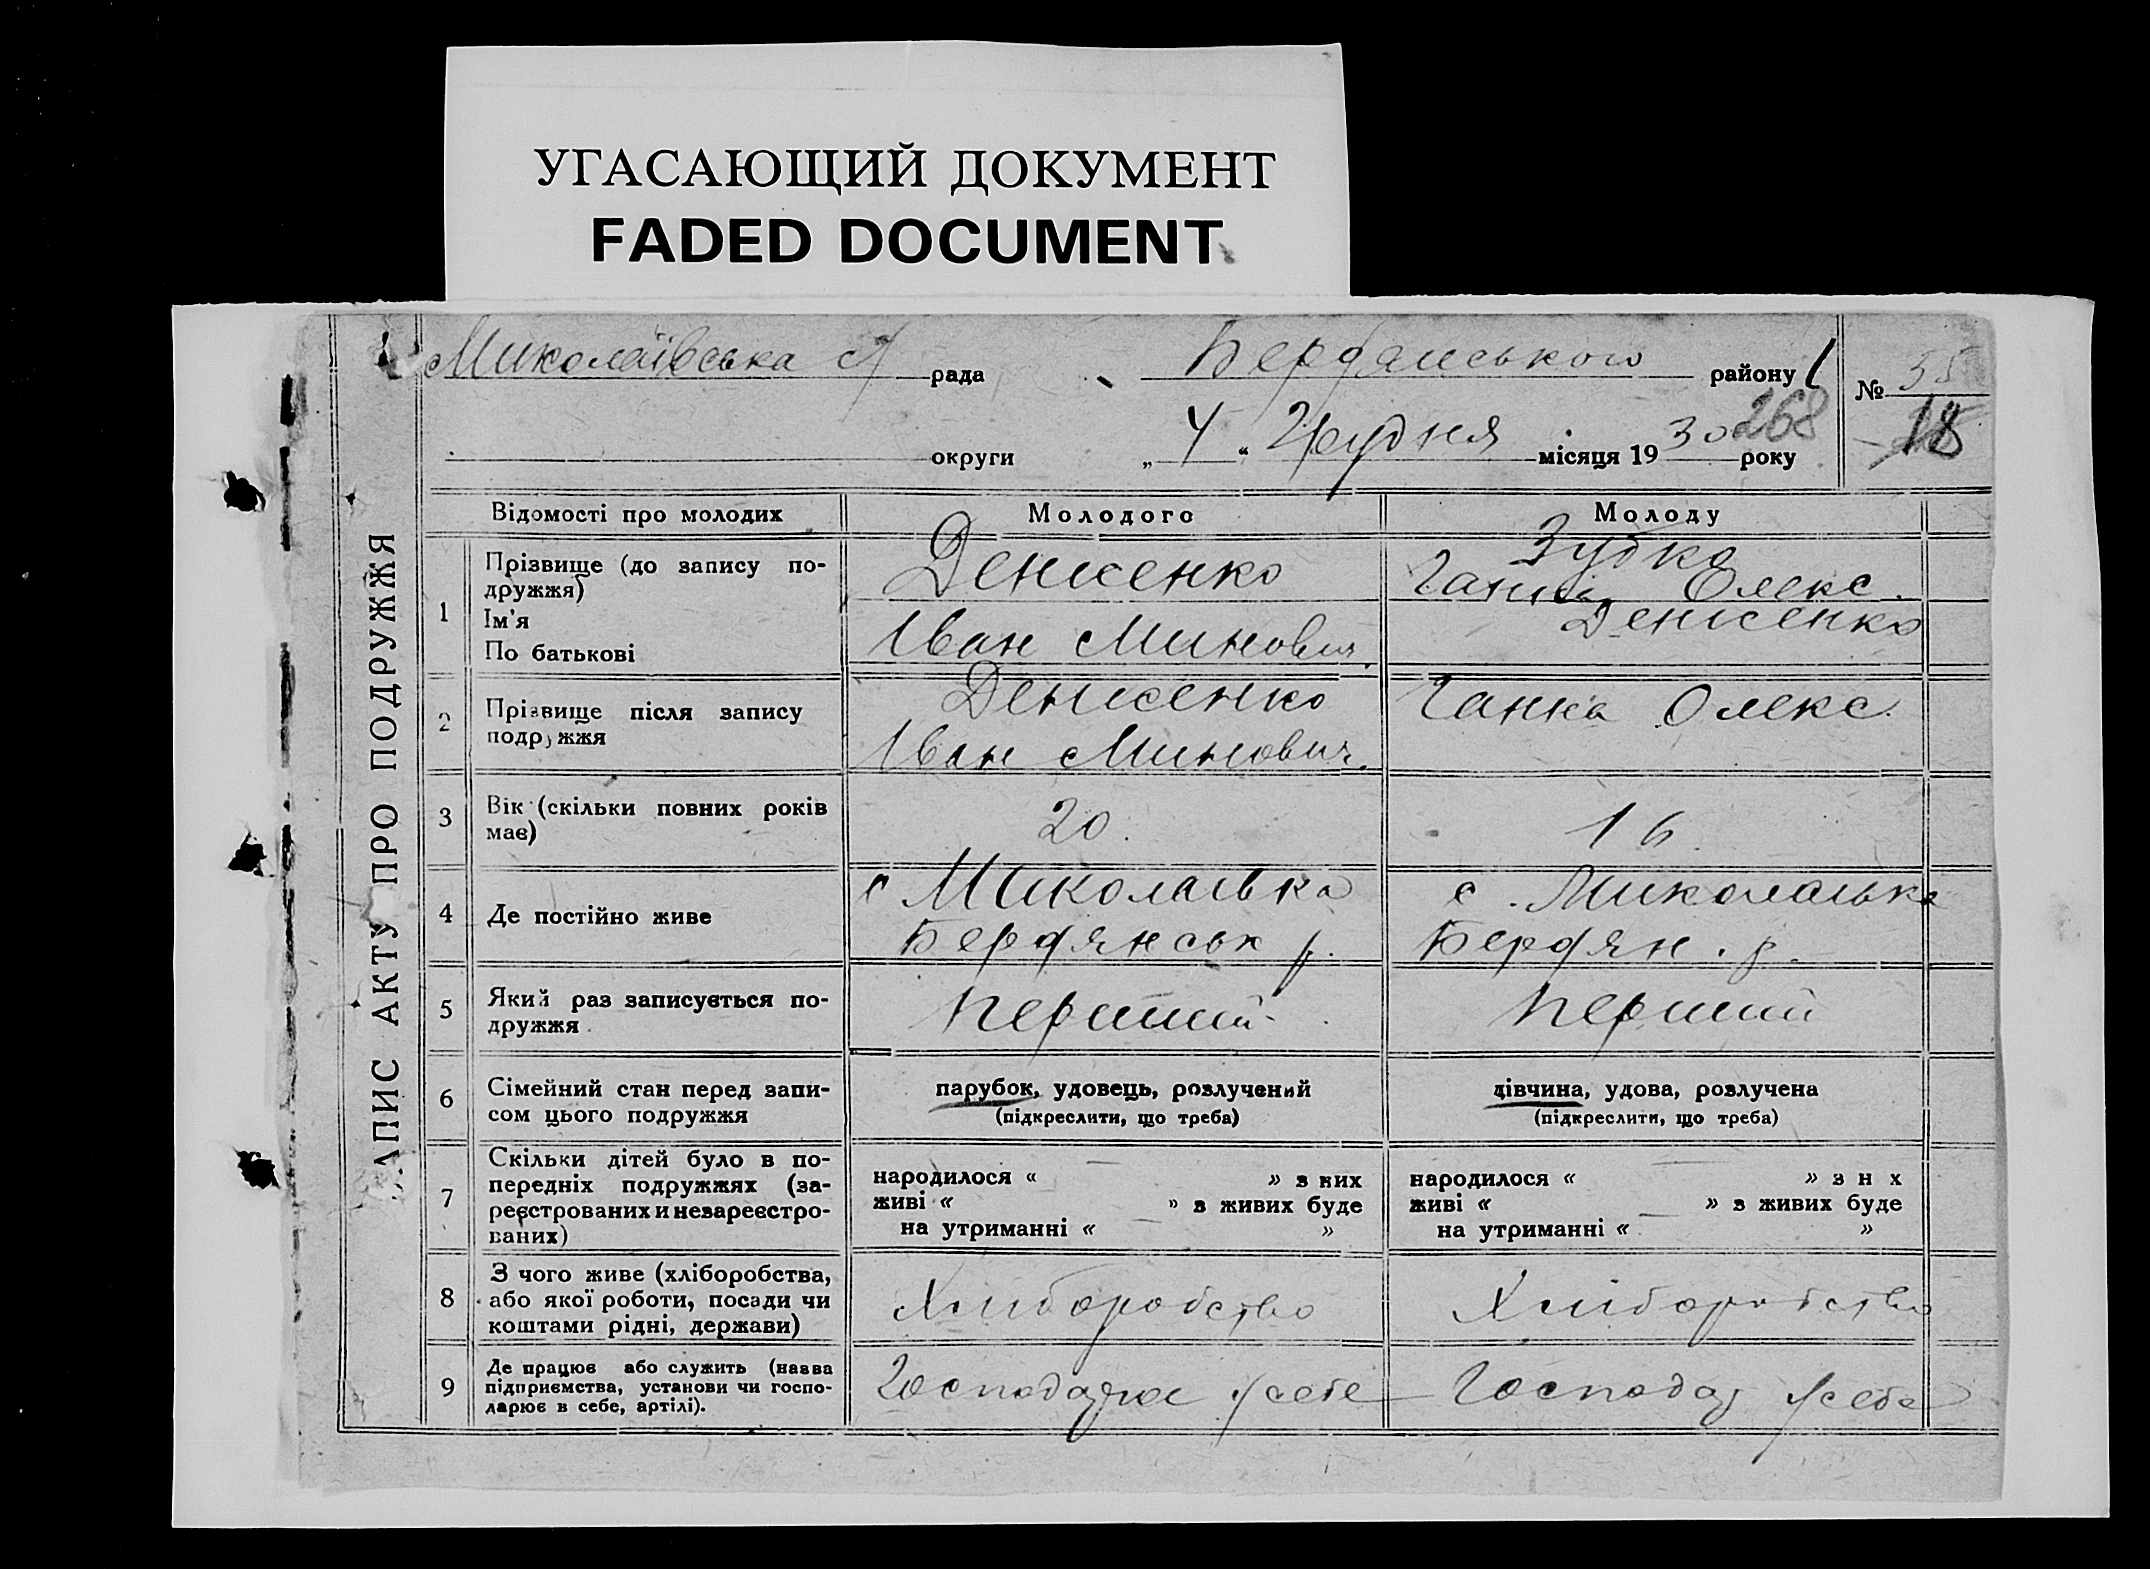 УГАСАЮЩИЙ ДОКУМЕНТ
FADED DOCUMENT
Миколаївська с/ рада Бердянського району № 35
268 18
округи „4“ Грудня місяця 1930 року
АПИС АКТУ ПРО ПОДРУЖЖЯ
Відомості про молодих Молодого Молоду
1 Прізвище (до запису по-
дружжя)
Ім'я
По батькові
Денисенко
Іван Минович
Зубко
Ганна Олекс.
2 Прізвище після запису
подружжя
Денисенко
Іван Минович.
Денисенко
Ганна Олекс.
3 Вік (скільки повних років
має)
20.
16
4 Де постійно живе
с Миколаівка
Бердянськ р.
с. Миколаівка
Бердян. р.
5 Який раз записується по-
дружжя
перший
перший
6 Сімейний стан перед запи-
сом цього подружжя
парубок, удовець, розлучений
(підкреслити, що треба)
дівчина, удова, розлучена
(підкреслити, що треба)
7 Скільки дітей було в по-
передніх подружжях (за-
реєстрованих и незареєстро-
ваних)
народилося « — » з них
живі « — » з живих буде
на утриманні « »
народилося « — » з н х
живі « — » з живих буде
на утриманні « »
8 З чого живе (хліборобства,
або якої роботи, посади чи
коштами рідні, держави)
Хліборобство
Хліборобство
9 Де працює або служить (назва
підприємства, установи чи госпо-
дарює в себе, артілі).
Господарює у себе
Господар у себе